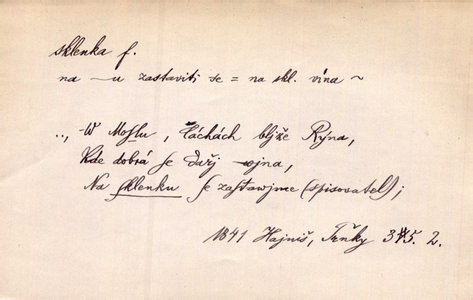 sklenka f.
na —u zastaviti se = na skl. vína ~
.., W Moſlu, Cáchách bljže Rýna,
Kde dobrá ſe dařj wjna,
Na ſklenku ſe zaſtawjme (spisovatel);
1841 Hajniš, Trnky 2.